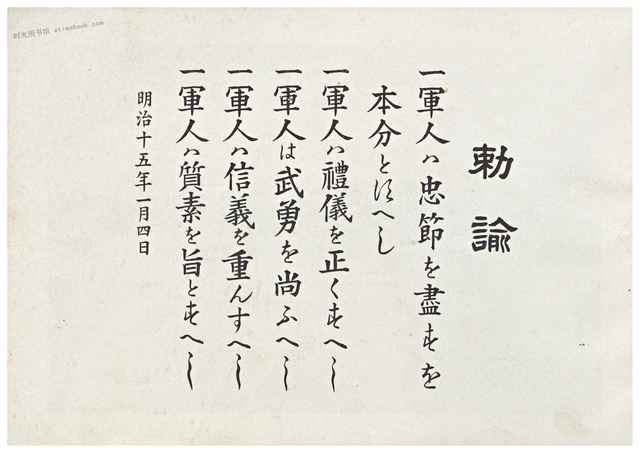 勅諭
一軍人ハ忠節を盡すを
本分とすへし
一軍人ハ禮儀を正くすへし
一軍人は武勇を尚ふへし
一軍人ハ信義を重んすへし
一軍人ハ質素を旨とすへし
明治十五年一月四日
时光图书馆 atimebook.com